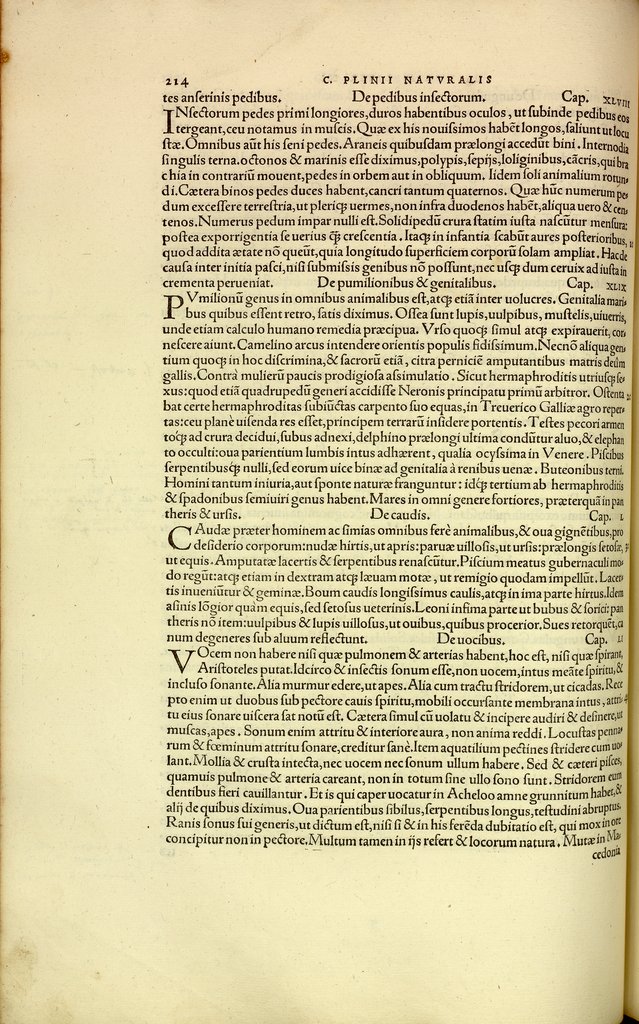 214 C. PLINII NATVRALIS
tes anserinis pedibus. De pedibus insectorum. Cap. XLVIII
INsectorum pedes primi longiores, duros habentibus oculos, ut subinde pedibus eos
tergeant, ceu notamus in muscis. Quæ ex his nouissimos habēt longos, saliunt ut locu
stæ. Omnibus aūt his seni pedes. Araneis quibusdam prælongi accedūt bini. Internodia
singulis terna. octonos & marinis esse diximus, polypis, sepijs, loliginibus, cācris, qui bra
chia in contrariū mouent, pedes in orbem aut in obliquum. Iidem soli animalium rotun
di. Cætera binos pedes duces habent, cancri tantum quaternos. Quæ hūc numerum pe
dum excessere terrestria, ut pleriq; uermes, non infra duodenos habēt, aliqua uero & cen
tenos. Numerus pedum impar nulli est. Solidipedū crura statim iusta nascūtur mensura:
postea exporrigentia se uerius q̄; crescentia. Itaq; in infantia scabūt aures posterioribus,
quod addita ætate nō queūt, quia longitudo superficiem corporū solam ampliat. Hac de
causa inter initia pasci, nisi submissis genibus nō possunt, nec usq; dum ceruix ad iusta in
crementa perueniat. De pumilionibus & genitalibus. Cap. XLIX
PVmilionū genus in omnibus animalibus est, atq; etiā inter uolucres. Genitalia mari
bus quibus essent retro, satis diximus. Ossea sunt lupis, uulpibus, mustelis, uiuerris,
unde etiam calculo humano remedia præcipua. Vrso quoq; simul atq; expirauerit, cor
nescere aiunt. Camelino arcus intendere orientis populis fidissimum. Necnō aliqua gen
tium quoq; in hoc discrimina, & sacrorū etiā, citra perniciē amputantibus matris deûm
gallis. Contrà mulierū paucis prodigiosa assimulatio. Sicut hermaphroditis utriusq; se
xus: quod etiā quadrupedū generi accidisse Neronis principatu primū arbitror. Ostenta
bat certe hermaphroditas subiūctas carpento suo equas, in Treuerico Galliæ agro reper
tas: ceu planè uisenda res esset, principem terrarū insidere portentis. Testes pecori armen
toq; ad crura decidui, subus adnexi, delphino prælongi ultima condūtur aluo, & elephan
to occulti: oua parientium lumbis intus adhærent, qualia ocyssima in Venere. Piscibus
serpentibusq; nulli, sed eorum uice binæ ad genitalia à renibus uenæ. Buteonibus terni.
Homini tantum iniuria, aut sponte naturæ franguntur: idq; tertium ab hermaphroditis
& spadonibus semiuiri genus habent. Mares in omni genere fortiores, præterquā in pan
theris & ursis. De caudis. Cap. L
CAudæ præter hominem ac simias omnibus ferè animalibus, & oua gignētibus, pro
desiderio corporum: nudæ hirtis, ut apris: paruæ uillosis, ut ursis: prælongis setosæ,
ut equis. Amputatæ lacertis & serpentibus renascūtur. Piscium meatus gubernaculi mo
do regūt: atq; etiam in dextram atq; læuam motæ, ut remigio quodam impellūt. Lacer
tis inueniūtur & geminæ. Boum caudis longissimus caulis, atq; in ima parte hirtus. Idem
asinis lōgior quàm equis, sed setosus ueterinis. Leoni infima parte ut bubus & sorici: pan
theris nō item: uulpibus & lupis uillosus, ut ouibus, quibus procerior. Sues retorquēt, ca
num degeneres sub aluum reflectunt. De uocibus. Cap. LI
VOcem non habere nisi quæ pulmonem & arterias habent, hoc est, nisi quæ spirant,
Aristoteles putat. Idcirco & insectis sonum esse, non uocem, intus meāte spiritu, &
incluso sonante. Alia murmur edere, ut apes. Alia cum tractu stridorem, ut cicadas. Rece
pto enim ut duobus sub pectore cauis spiritu, mobili occursante membrana intus, attri
tu eius sonare uiscera sat notū est. Cætera simul cū uolatu & incipere audiri & desinere, ut
muscas, apes. Sonum enim attritu & interiore aura, non anima reddi. Locustas penna
rum & fœminum attritu sonare, creditur sanè. Item aquatilium pectines stridere cum uo
lant. Mollia & crusta intecta, nec uocem nec sonum ullum habere. Sed & cæteri pisces,
quamuis pulmone & arteria careant, non in totum sine ullo sono sunt. Stridorem eum
dentibus fieri cauillantur. Et is qui caper uocatur in Acheloo amne grunnitum habet, &
alij de quibus diximus. Oua parientibus sibilus, serpentibus longus, testudini abruptus.
Ranis sonus sui generis, ut dictum est, nisi si & in his ferēda dubitatio est, qui mox in ore
concipitur non in pectore. Multum tamen in ijs refert & locorum natura. Mutæ in Ma
cedonia